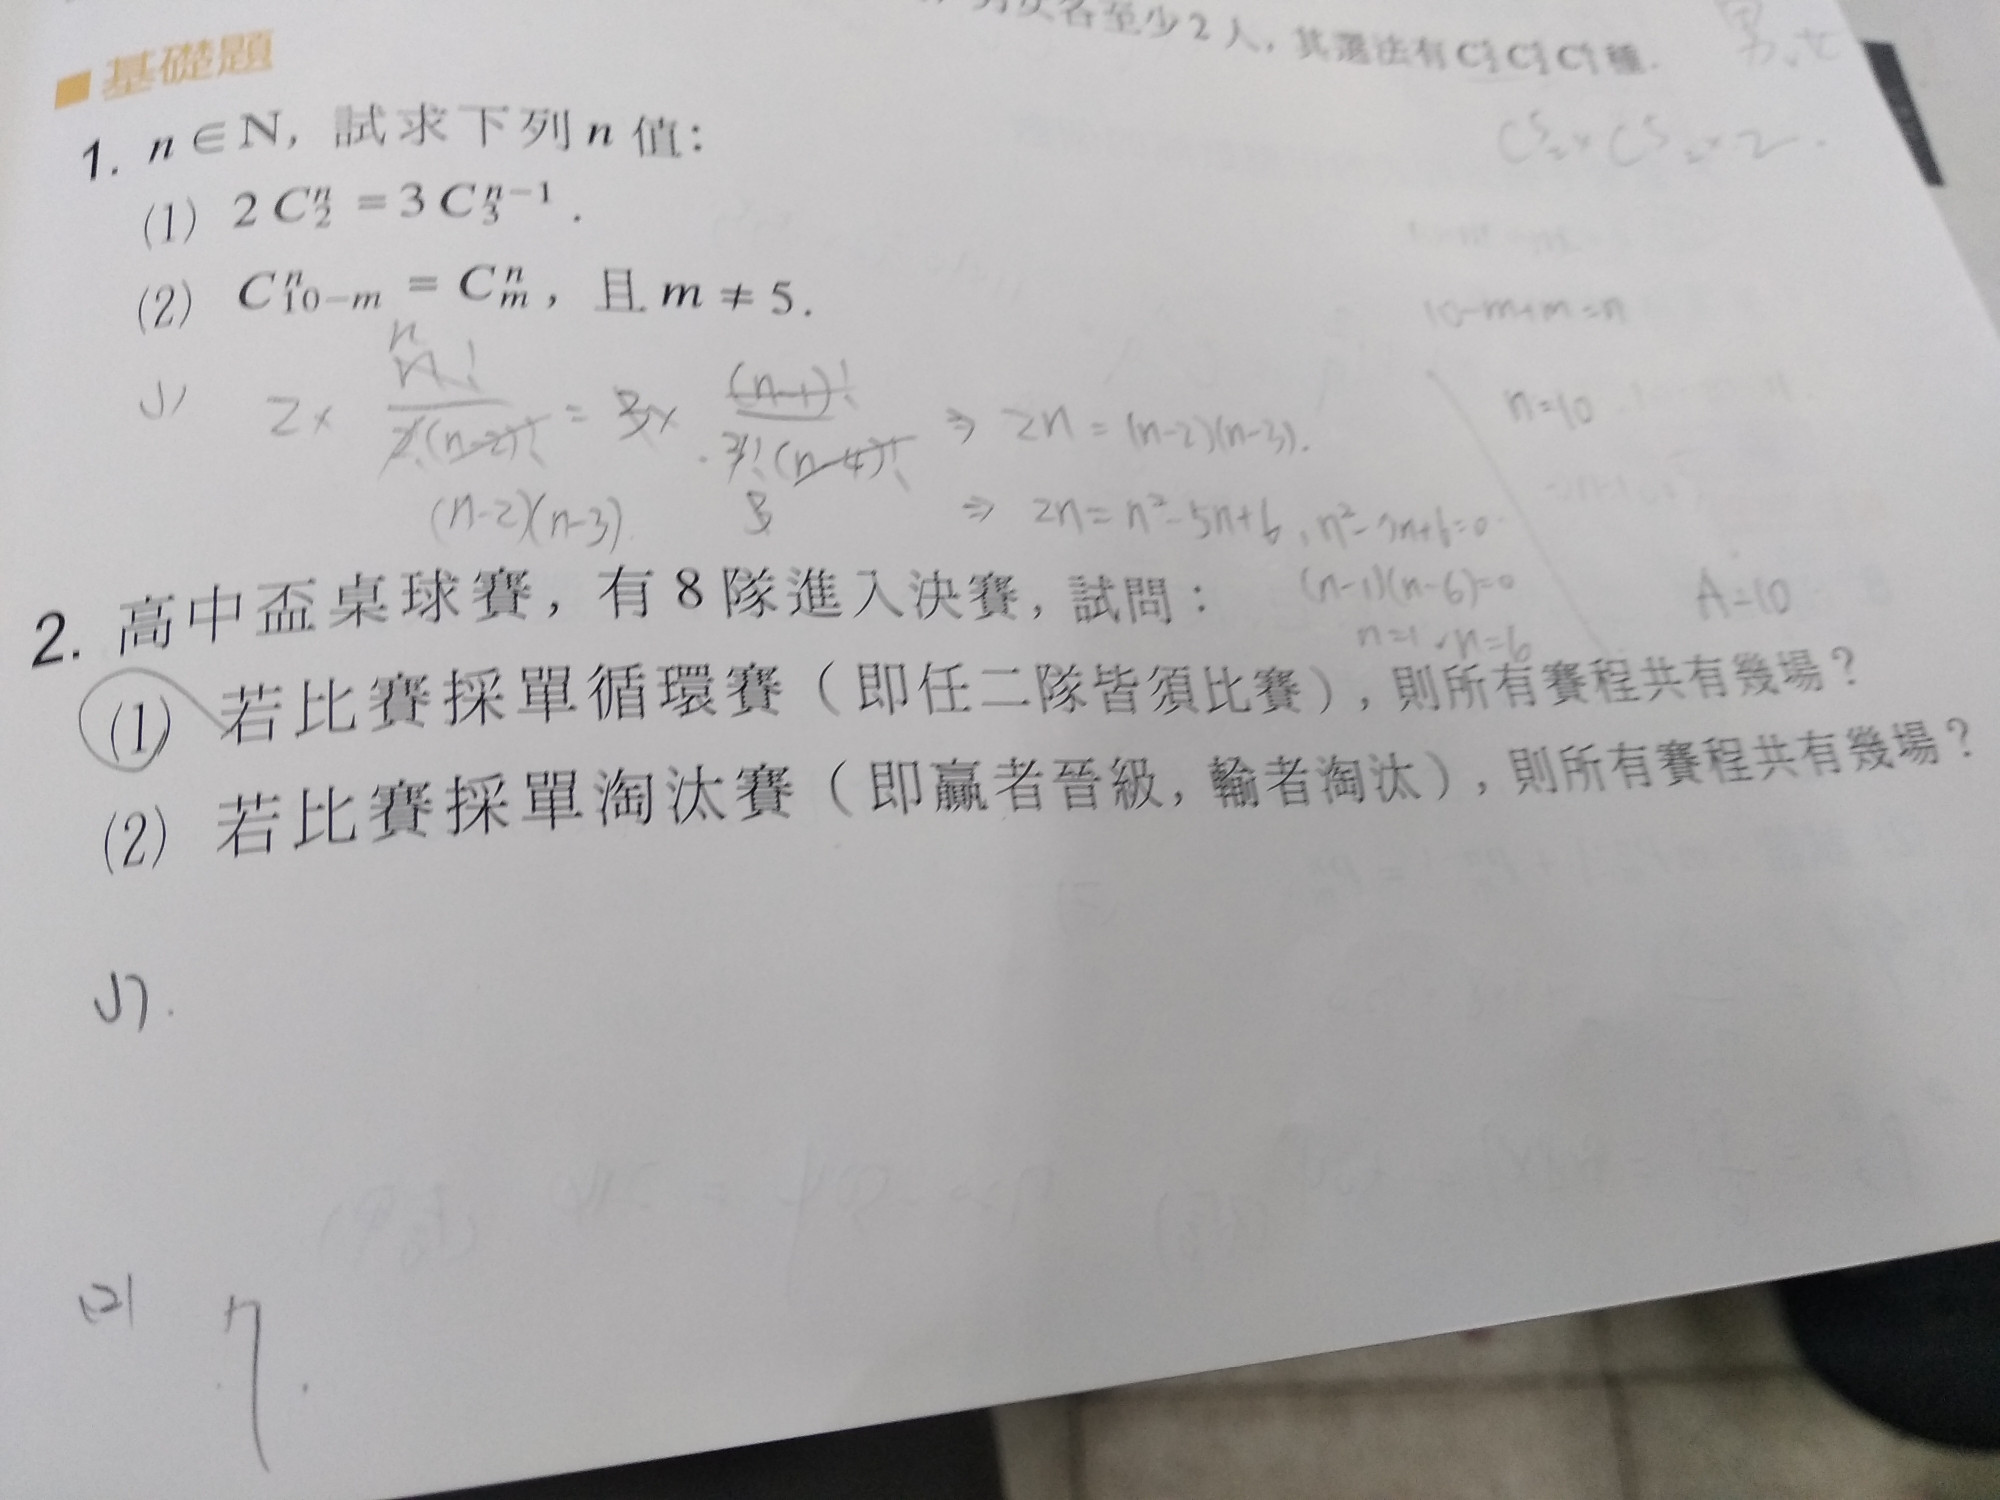 各至少2人, 其選法有C C C 種.
■基礎題
C⁵₂×C⁵₂×2.
1. n∈N, 試求下列n值:
(1) 2C₂ⁿ=3C₃ⁿ⁻¹.
(2) Cⁿ₁₀₋ₘ=Cⁿₘ, 且m≠5.
10-m+m=n
n=10
(n-1)!
⇒ 2n=(n-2)(n-3).
(n-2)(n-3)
⇒ 2n=n²-5n+6, n²-7n+6=0
(n-1)(n-6)=0
n=1, n=6
A=10
2. 高中盃桌球賽, 有8隊進入決賽, 試問:
(1) 若比賽採單循環賽(即任二隊皆須比賽), 則所有賽程共有幾場?
(2) 若比賽採單淘汰賽(即贏者晉級, 輸者淘汰), 則所有賽程共有幾場?
(1).
(2) 7.